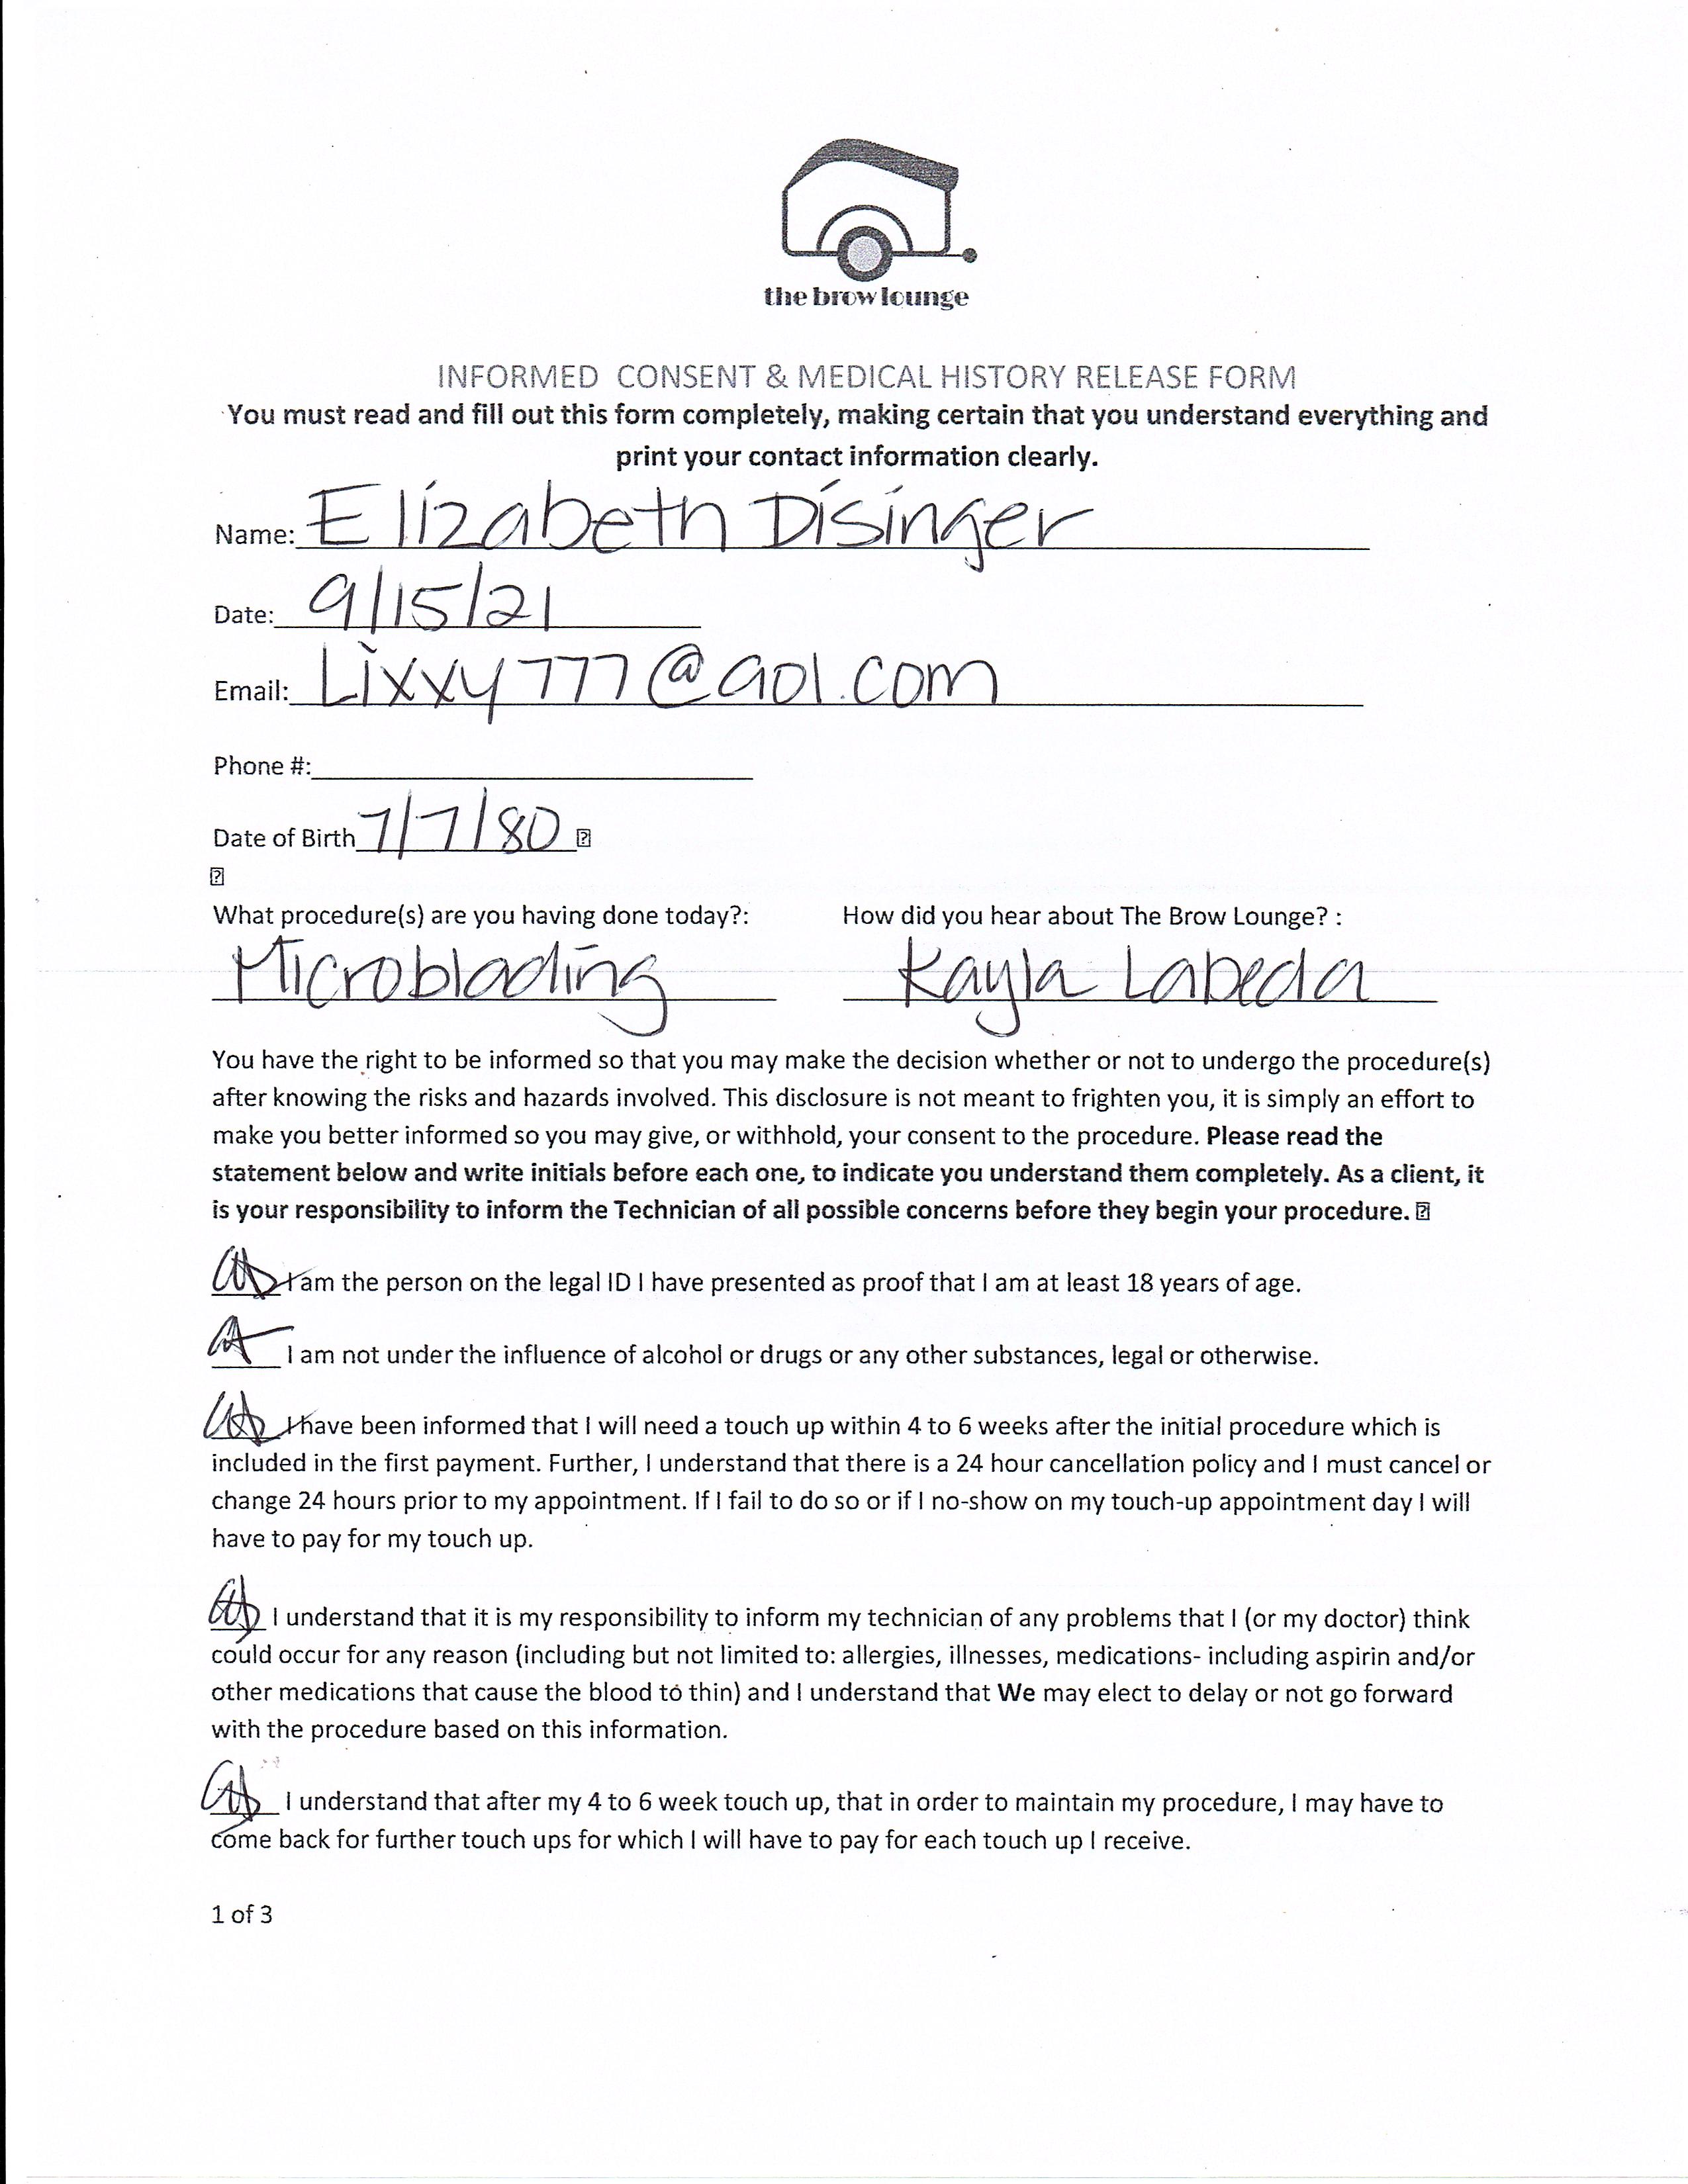 the brow lounge
INFORMED CONSENT & MEDICAL HISTORY RELEASE FORM
You must read and fill out this form completely, making certain that you understand everything and
print your contact information clearly.
Name: Elizabeth Disinger
Date: 9/15/21
Email: Lixxy777@aol.com
Phone #:
Date of Birth 7/7/80
What procedure(s) are you having done today?: How did you hear about The Brow Lounge? :
Microblading Kayla Labeda
You have the right to be informed so that you may make the decision whether or not to undergo the procedure(s)
after knowing the risks and hazards involved. This disclosure is not meant to frighten you, it is simply an effort to
make you better informed so you may give, or withhold, your consent to the procedure. Please read the
statement below and write initials before each one, to indicate you understand them completely. As a client, it
is your responsibility to inform the Technician of all possible concerns before they begin your procedure.
I am the person on the legal ID I have presented as proof that I am at least 18 years of age.
I am not under the influence of alcohol or drugs or any other substances, legal or otherwise.
I have been informed that I will need a touch up within 4 to 6 weeks after the initial procedure which is
included in the first payment. Further, I understand that there is a 24 hour cancellation policy and I must cancel or
change 24 hours prior to my appointment. If I fail to do so or if I no-show on my touch-up appointment day I will
have to pay for my touch up.
I understand that it is my responsibility to inform my technician of any problems that I (or my doctor) think
could occur for any reason (including but not limited to: allergies, illnesses, medications- including aspirin and/or
other medications that cause the blood to thin) and I understand that We may elect to delay or not go forward
with the procedure based on this information.
I understand that after my 4 to 6 week touch up, that in order to maintain my procedure, I may have to
come back for further touch ups for which I will have to pay for each touch up I receive.
1 of 3